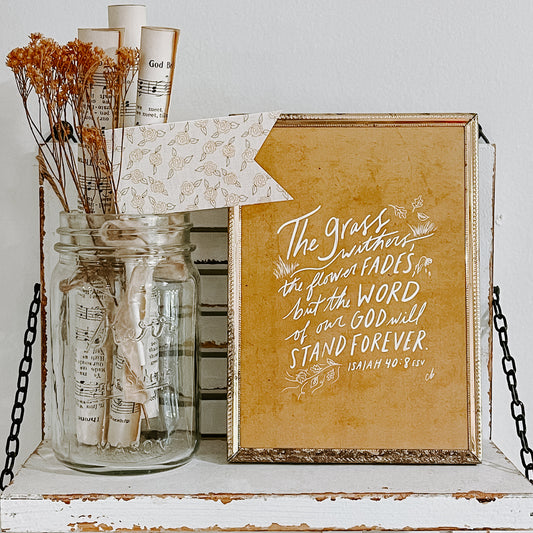 God Be
The grass
withers,
the flower FADES,
but the WORD
of our GOD will
STAND FOREVER.
ISAIAH 40:8 ESV
cb